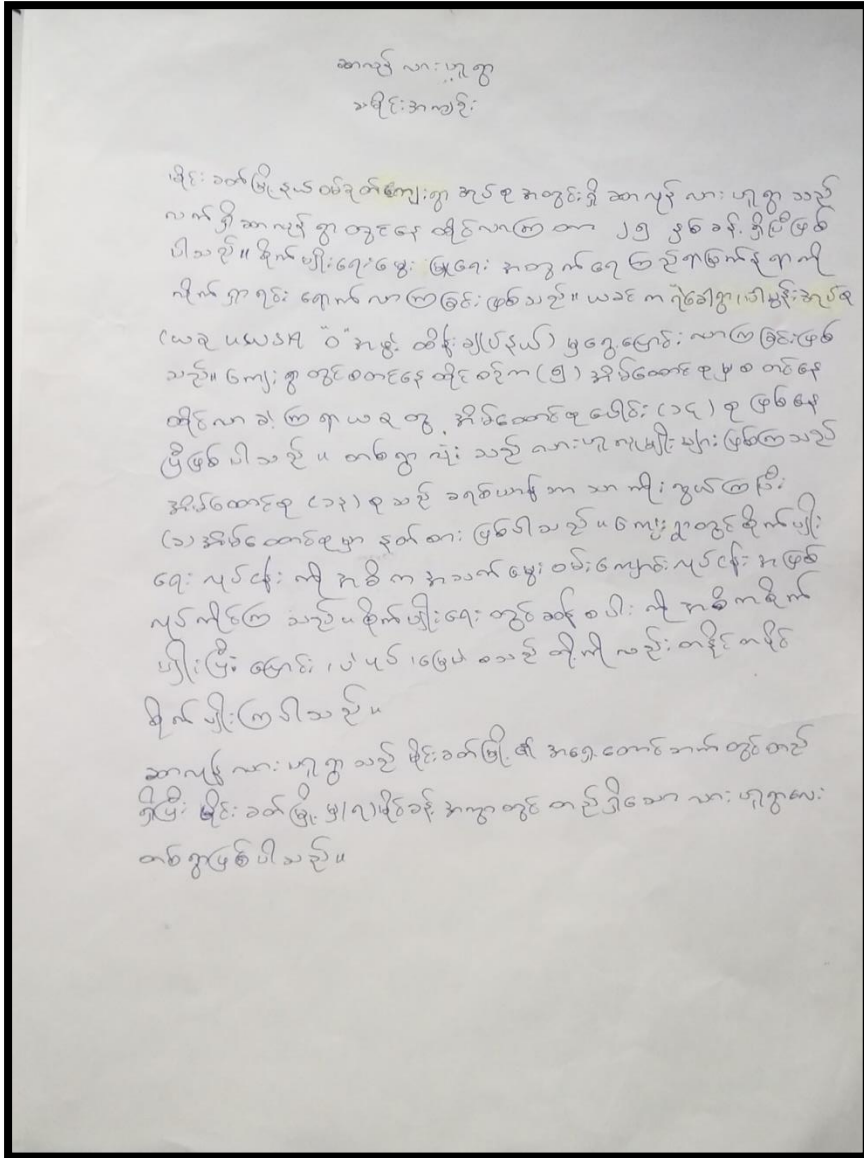 ဆာလုန် လားဟူရွာ
သမိုင်းအကျဉ်း
မိုင်းခတ်မြို့နယ်ဝမ်ဒုတ်ကျေးရွာအုပ်စုအတွင်းရှိ ဆာလုန် လားဟူရွာ သည်
လက်ရှိဆာလုန်ရွာတွင်နေထိုင်လာကြတာ ၂၅ နှစ်ခန့် ရှိပြီဖြစ်
ပါသည်။ စိုက်ပျိုးရေးမွေးမြူရေး အတွက်ရေကြည်ရာမြက်နုရာကို
လိုက်ရှာရင်း ရောက်လာကြခြင်းဖြစ်သည်။ ယခင်က
(ယခု UWSA "ဝ"အဖွဲ့ ထိန်းချုပ်နယ်) မှရွှေ့ပြောင်းလာကြခြင်းဖြစ်
သည်။ ကျေးရွာတွင်စတင်နေထိုင်စဉ်က (၅) အိမ်ထောင်စုမှစတင်နေ
ထိုင်လာခဲ့ကြရာယခုတွင် အိမ်ထောင်စုပေါင်း (၁၄) စု ဖြစ်နေ
ပြီဖြစ်ပါသည်။ တစ်ရွာလုံး သည် လားဟူလူမျိုးများဖြစ်ကြသည်
အိမ်ထောင်စု (၁၃) စုသည် ခရစ်ယာန်ဘာသာကိုးကွယ်ကြပြီး
(၁) အိမ်ထောင်စုမှာ နတ်စား ဖြစ်ပါသည်။ ကျေးရွာတွင်စိုက်ပျိုး
ရေးလုပ်ငန်းကို အဓိက အသက်မွေးဝမ်းကျောင်းလုပ်ငန်းအဖြစ်
လုပ်ကိုင်ကြသည်။ စိုက်ပျိုးရေးတွင်ဆန်စပါးကို အဓိကစိုက်
ပျိုးပြီး ပြောင်း၊ ပဲပုပ်၊ မြေပဲ စသည်တို့ကိုလည်းတနိုင်တပိုင်
စိုက်ပျိုးကြပါသည်။
ဆာလုန် လားဟူရွာသည် မိုင်းခတ်မြို့၏ အရှေ့တောင်ဘက်တွင်တည်
ရှိပြီး မိုင်းခတ်မြို့မှ(၇)မိုင်ခန့် အကွာတွင်တည်ရှိသော လားဟူရွာလေး
တစ်ရွာဖြစ်ပါသည်။